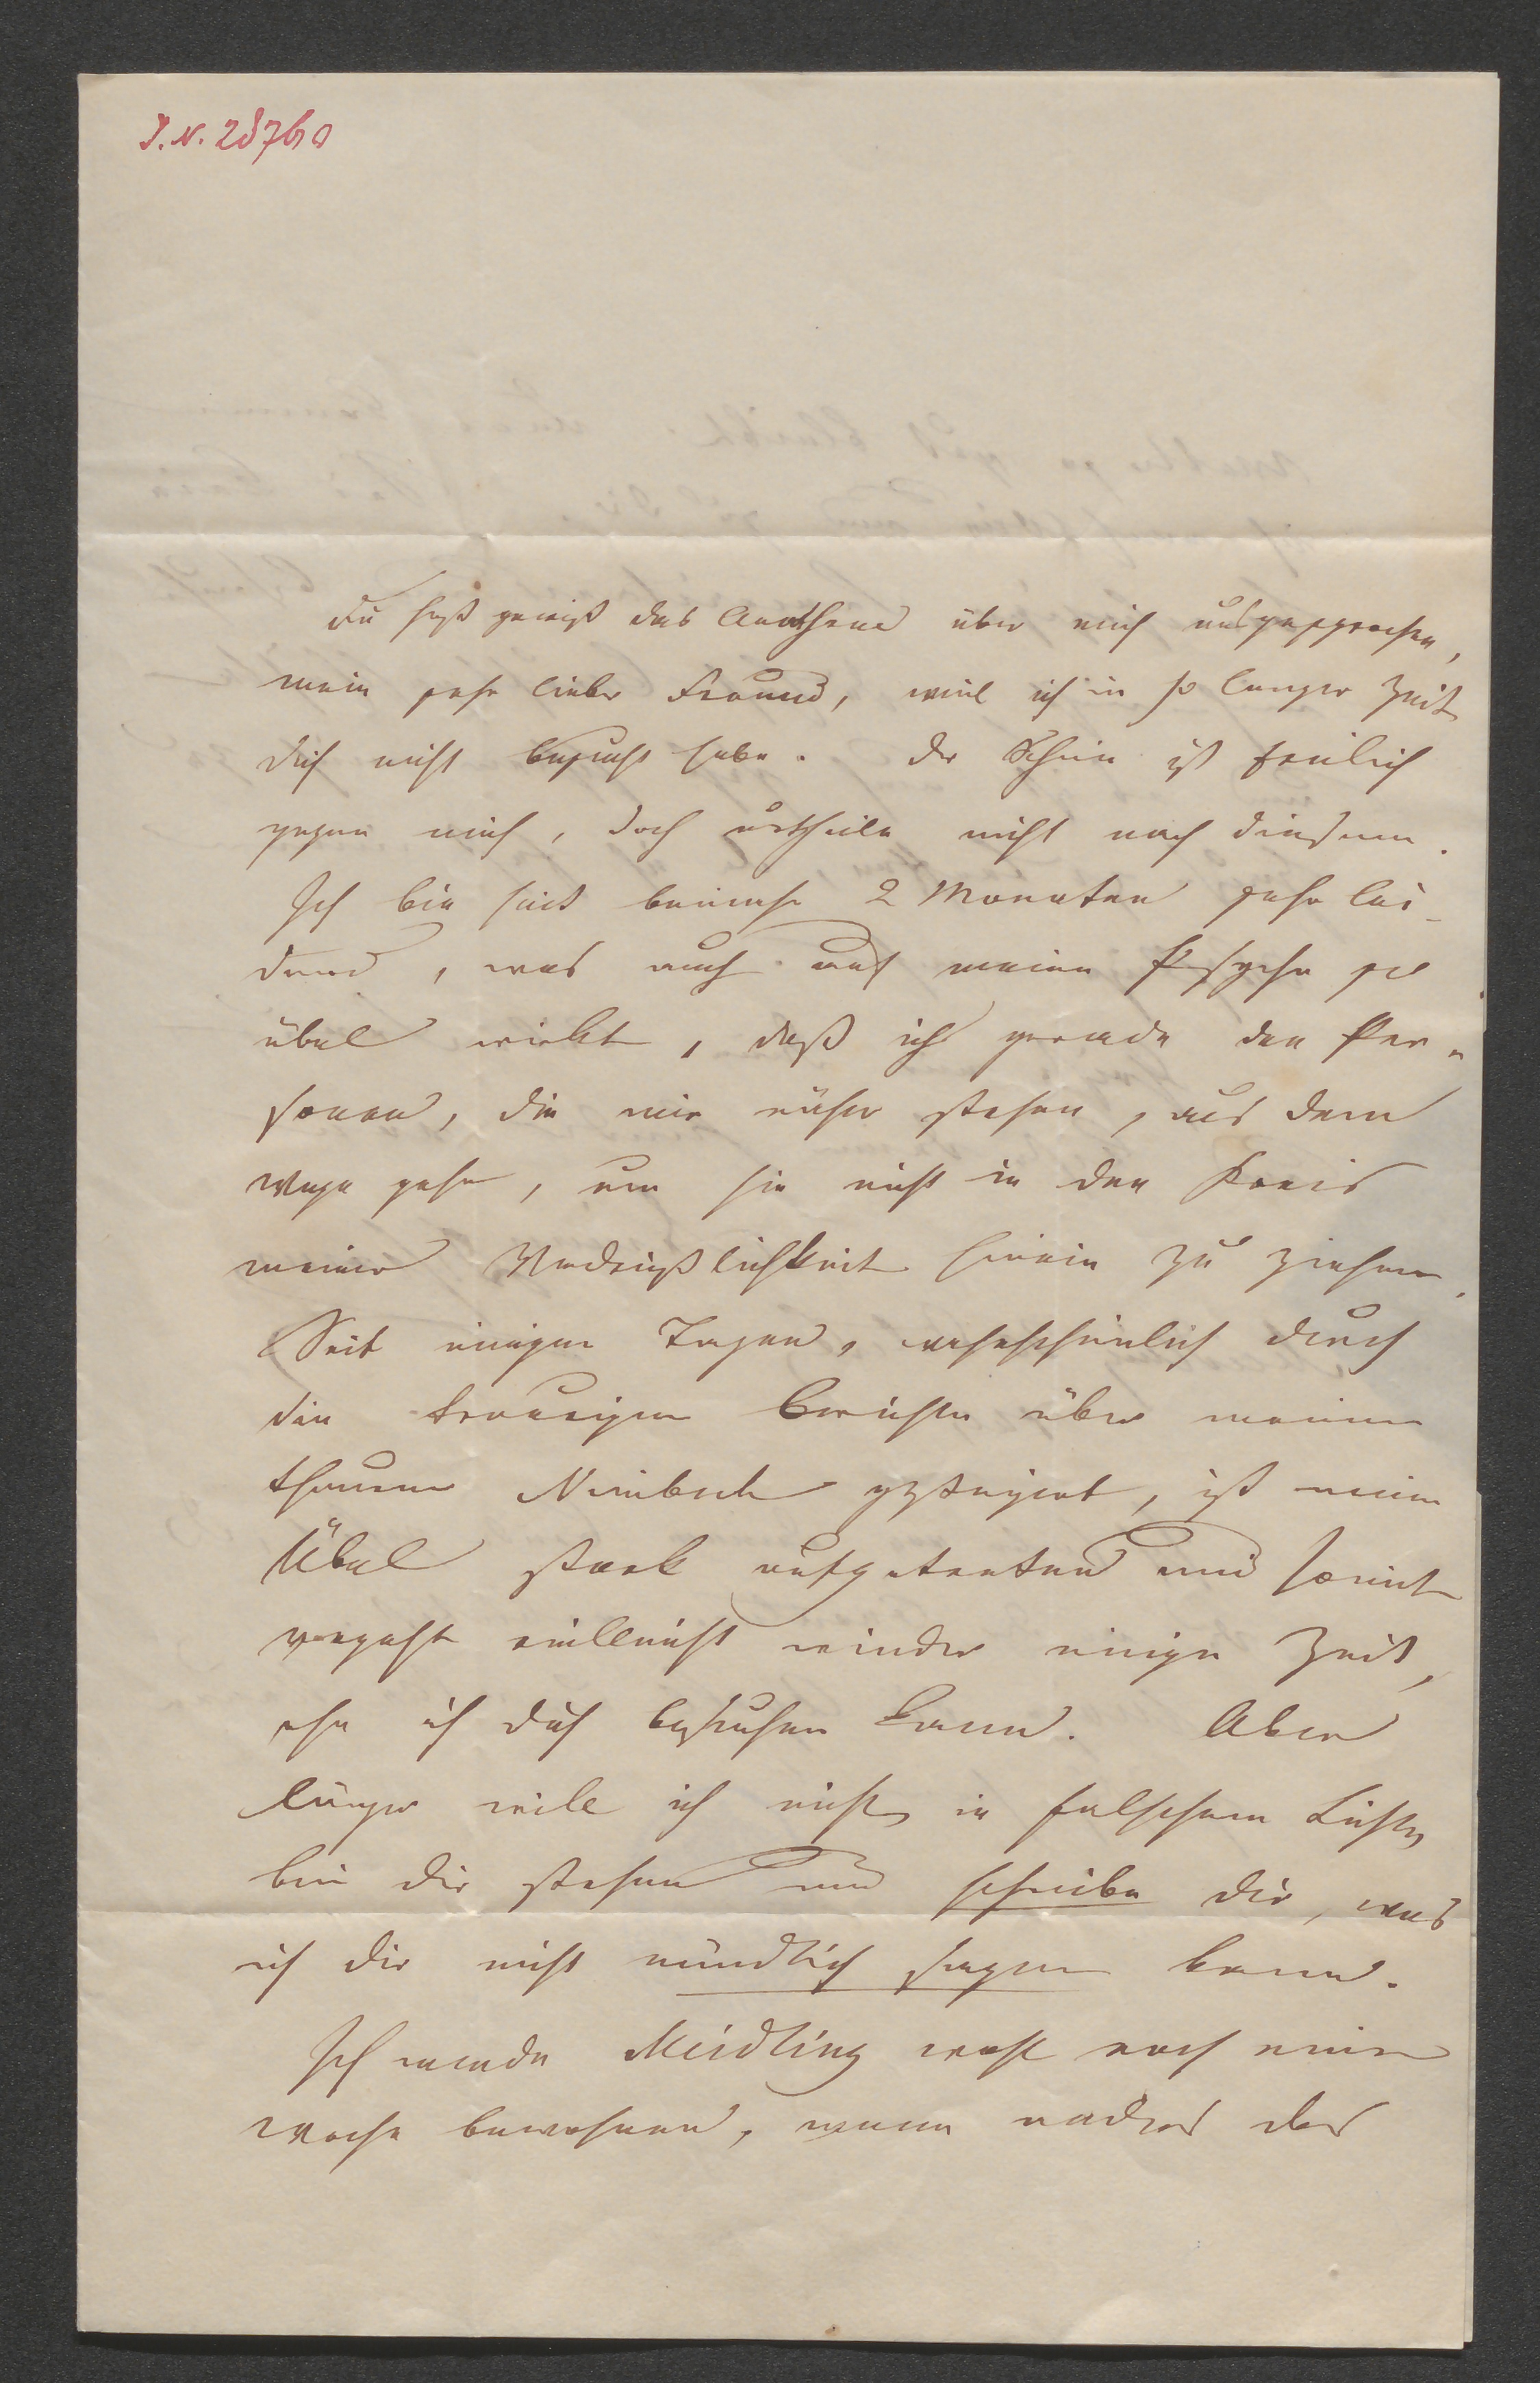 I.N. 28760
Du hast gewiß das Anathema über mich ausgesprochen,
mein sehr lieber Freund, weil ich in so langer Zeit
dich nicht besucht habe. Der Schein ist freilich
gegen mich, doch urtheile nicht nach diesem.
Ich bin seit beinahe 2 Monaten sehr lei-
dend, was auch auf meine Psyche so
übel wirkt, daß ich gerade den Per-
sonen, die mir näher stehen, aus dem
Wege gehe, um sie nicht in den Kreis
meiner Verdrießlichkeit hinein zu ziehen.
Seit einigen Tagen, wahrscheinlich durch
die traurigen Berichte über meinen
theuern Niembsch gesteigert, ist mein
Übel stark aufgetreten und somit
vergeht vielleicht wieder einige Zeit,
ehe ich dich besuchen kann. Aber
länger will ich nicht in falschem Lichte
bei dir stehen und schreibe dir, was
ich dir nicht mündlich sagen kann.
Ich werde Meidling wohl noch eine
Woche bewohnen, wenn anders das